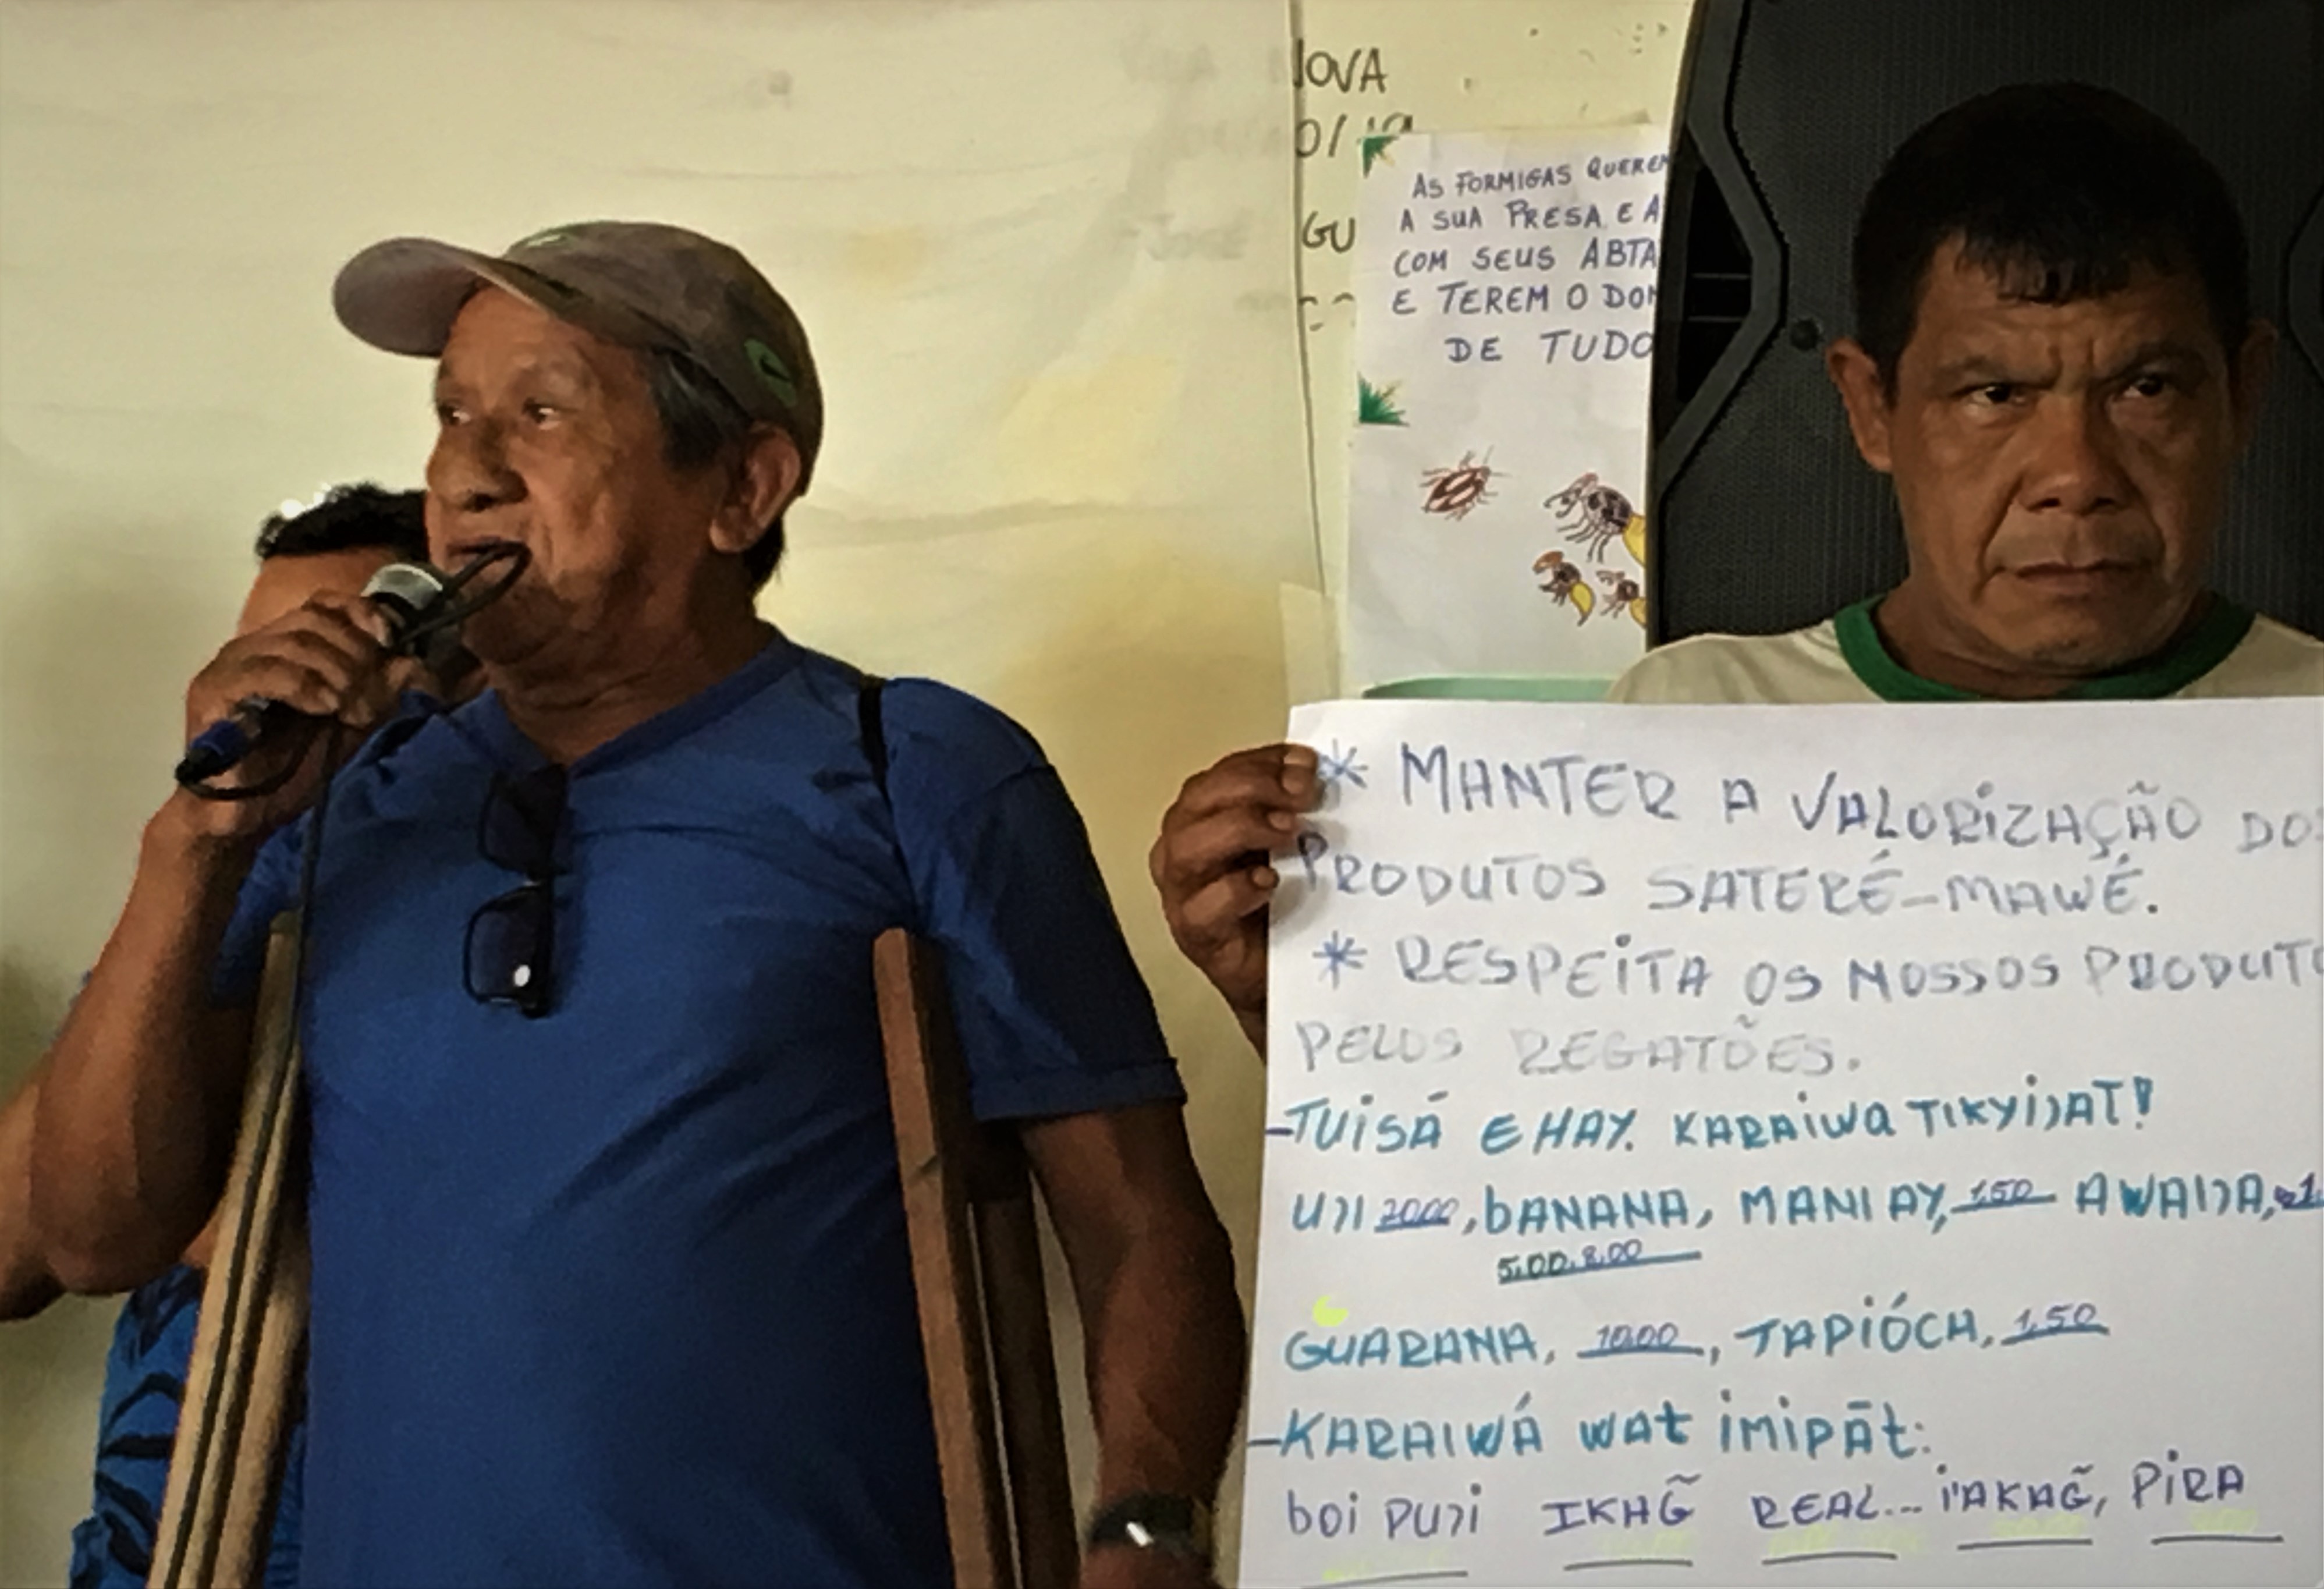 OVA
0/19
GU
AS FORMIGAS QUEREM
A SUA PRESA E A
COM SEUS ABTA
E TEREM O DOM
DE TUDO
* MANTER A VALORIZAÇÃO DO
PRODUTOS SATERÉ-MAWÉ.
* RESPEITA OS NOSSOS PRODUTO
PELOS REGATÕES.
-TUISÁ E HAY. KARAIWA
, BANANA, MANI AY, 1,50
5,00.8,00
GUARANA, 10,00, TAPIÓCA, 1,50
-KARAIWÁ wat imipãt:
boi IKAG̃ REAL... i'AKAG̃, PIRA